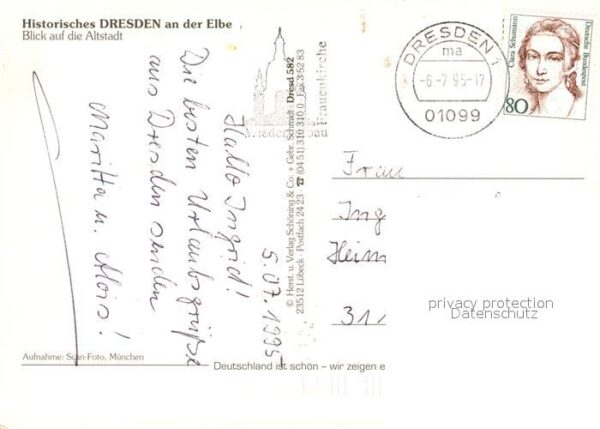 Historisches DRESDEN an der Elbe
Blick auf die Altstadt
5.07.1995
Hallo Ingrid!
Die besten Urlaubsgrüße
aus Dresden senden
Maritta u. Alois!
Aufnahme: Scan-Foto, München
© Herst. u. Verlag Schöning & Co. + Gebr. Schmidt · Dresd 582
23512 Lübeck · Postfach 24 23 · ☎ (04 51) 310 310 0 · Fax 3 52 83
Frauenkirche
DRESDEN 1
ma
-6.-7.95-17
01099
Clara Schumann
Deutsche Bundespost
80
Frau
Ing
Heim
31
privacy protection
Datenschutz
Deutschland ist schön – wir zeigen e